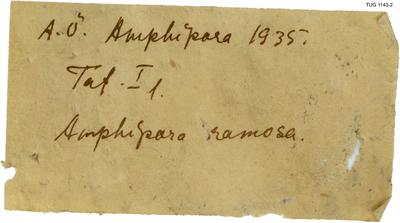 TUG 1143-2
A.Ö. Amphipora 1935.
Taf. I 1.
Amphipora ramosa.